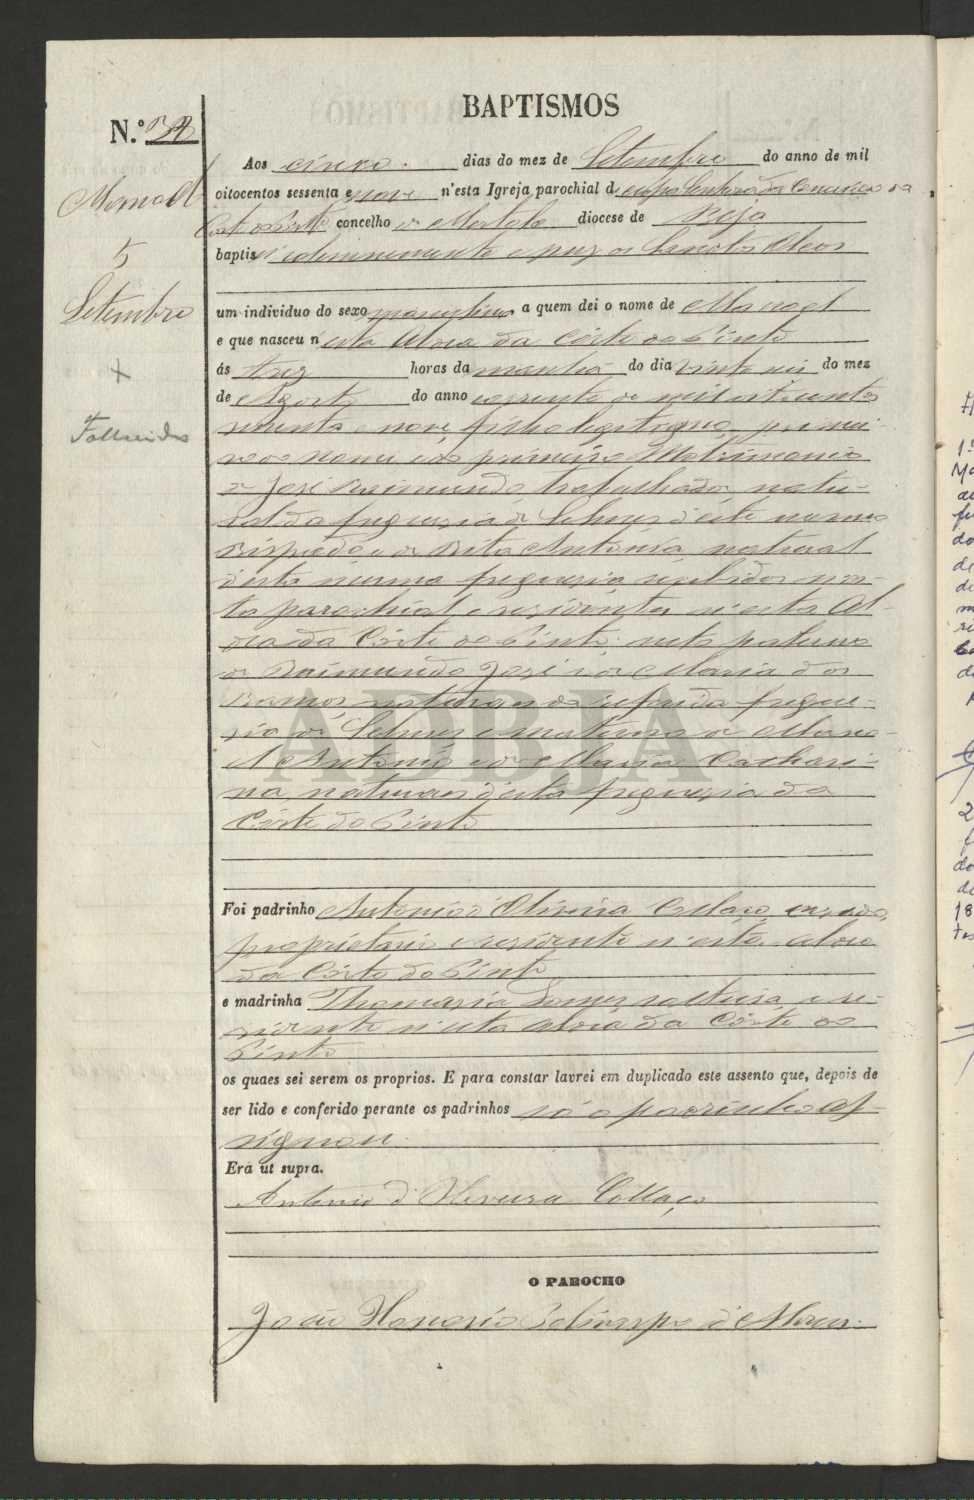 BAPTISMOS
N.º
Manoel
5
Setembro
+
Fallecido
Aos cinco dias do mez de Setembro do anno de mil
oitocentos sessenta e nove n'esta Igreja parochial de Nossa Senhora da Conceição da
Corte do Pinto concelho de Mertola diocese de Beja
baptisei solemnemente e puz os Sanctos Oleos
um individuo do sexo masculino a quem dei o nome de Manoel
e que nasceu n'esta Aldea da Côrte do Pinto
ás trez horas da manhã do dia vinte seis do mez
de Agosto do anno corrente de mil oitocentos
sessenta e nove, filho legitimo, primei-
ro do nome e do primeiro Matrimonio
de José Raimundo, trabalhador, natu-
ral da freguezia de Selmes d'este mesmo
Bispado e de Rita Antonia, natural
d'esta mesma freguezia recebidos nes-
ta parochial e residentes n'esta Al-
dea da Côrte do Pinto: neto paterno
de Raimundo José e de Maria dos
Ramos, naturaes da referida fregue-
zia de Selmes e materno de Mano-
el Antonio e de Maria Cathari-
na, naturaes d'esta freguezia da
Côrte do Pinto
Foi padrinho Antonio d'Oliveira Collaço, casado,
proprietario e residente n'esta aldea
da Côrte do Pinto
e madrinha Thomazia Gomes solteira, e re-
sidente n'esta aldea da Côrte do
Pinto
os quaes sei serem os proprios. E para constar lavrei em duplicado este assento que, depois de
ser lido e conferido perante os padrinhos só o padrinho as-
signou.
Era ut supra.
Antonio d'Oliveira Collaço
O PAROCHO
João Honorio
ADBJA